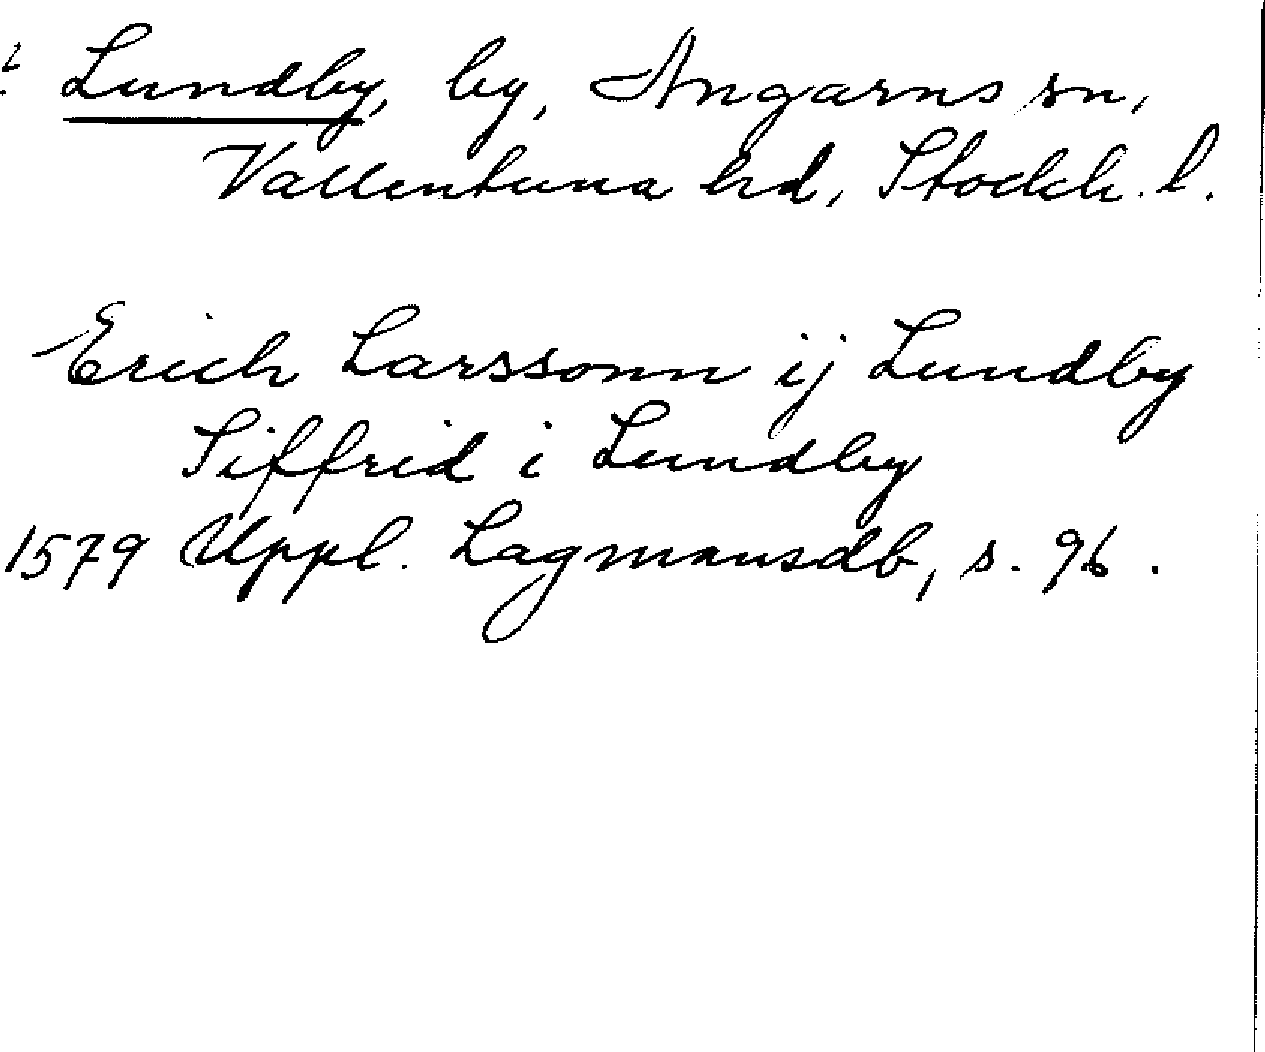 Lundby, by, Angarns sn,
Vallentuna hd, Stockh. l.
Erich Larssonn ij Lundby
Siffrid i Lundby
1579 Uppl. Lagmansdb, s. 96.